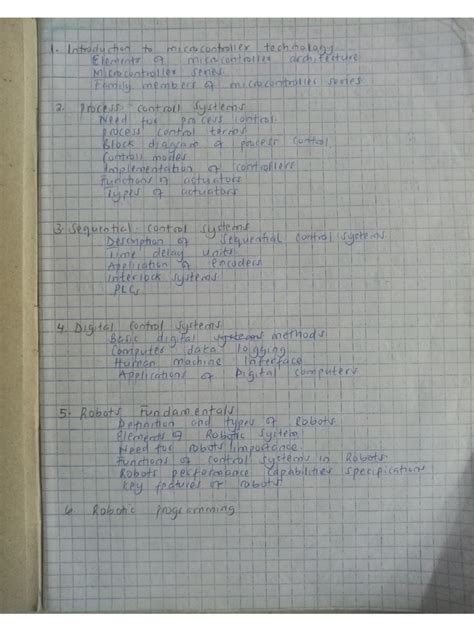 1. Introduction to microcontroller technology
Elements of microcontroller architecture
Microcontroller series
Family members of microcontroller series
2. Process control systems
Need for process control
process control terms
Block diagram of process control
Control modes
Implementation of controllers
Functions of actuators
Types of actuators
3. Sequential control systems
Description of sequential control systems
Time delay units
Application of encoders
Interlock systems
PLCs
4. Digital control systems
Basic digital systems methods
Computer data logging
Human Machine Interface
Applications of Digital computers
5. Robots Fundamentals
Definition and types of Robots
Elements of Robotic system
Need for robots importance
Functions of control systems in Robots
Robots performance capabilities specifications
Key features of robots
6 Robotic programming